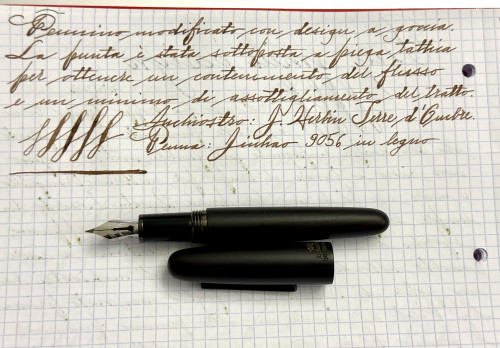 Pennino modificato con design a goccia.
La punta è stata sottoposta a piega tattica
per ottenere un contenimento del flusso
e un minimo di assottigliamento del tratto.
Inchiostro: J. Herbin Terre d'Ombre.
Penna: Jinhao 9056 in legno